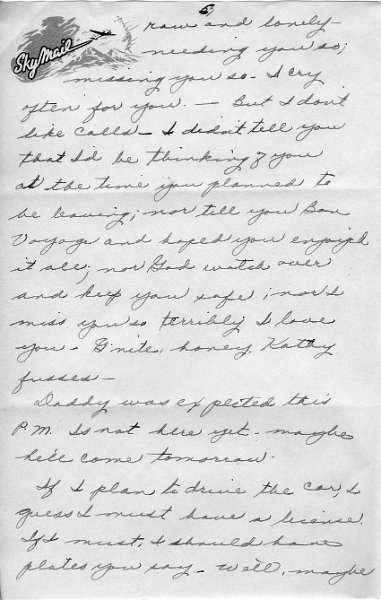 5
Sky Mail
raw and lonely
needing you so;
missing you so - I cry
often for you. — But I don't
like calls - I didn't tell you
that I'd be thinking of you
at the time you planned to
be leaving; nor tell you Bon
Voyage and hoped you enjoyed
it all; nor God watch over
and keep you safe; nor I
miss you so terribly I love
you - G'nite, honey. Kathy
fusses —
Daddy was expected this
P.M. Is not here yet - maybe
he'll come tomorrow.
If I plan to drive the car, I
guess I must have a license.
If I must, I should have
plates you say - Well, maybe